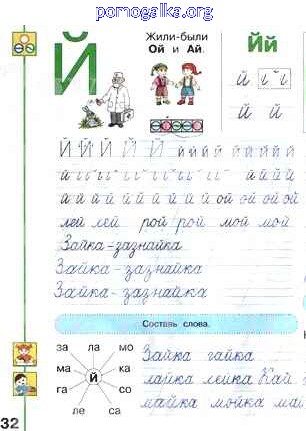 pomogalka.org
Жили-были
Ой и Ай.
Й
Йй
й
й й
Й Й Й Й Й й й й й й й й
й й й й й
й й й й й й й й й й ой ой ой ой
лей лей рой рой мой мой
Зайка-зазнайка
Зайка-зазнайка
Зайка-зазнайка
Составь слова.
за ла мо
ма ка
й
га со
ле са
Зайка гайка
лайка лейка Кай
майка мойка май
32